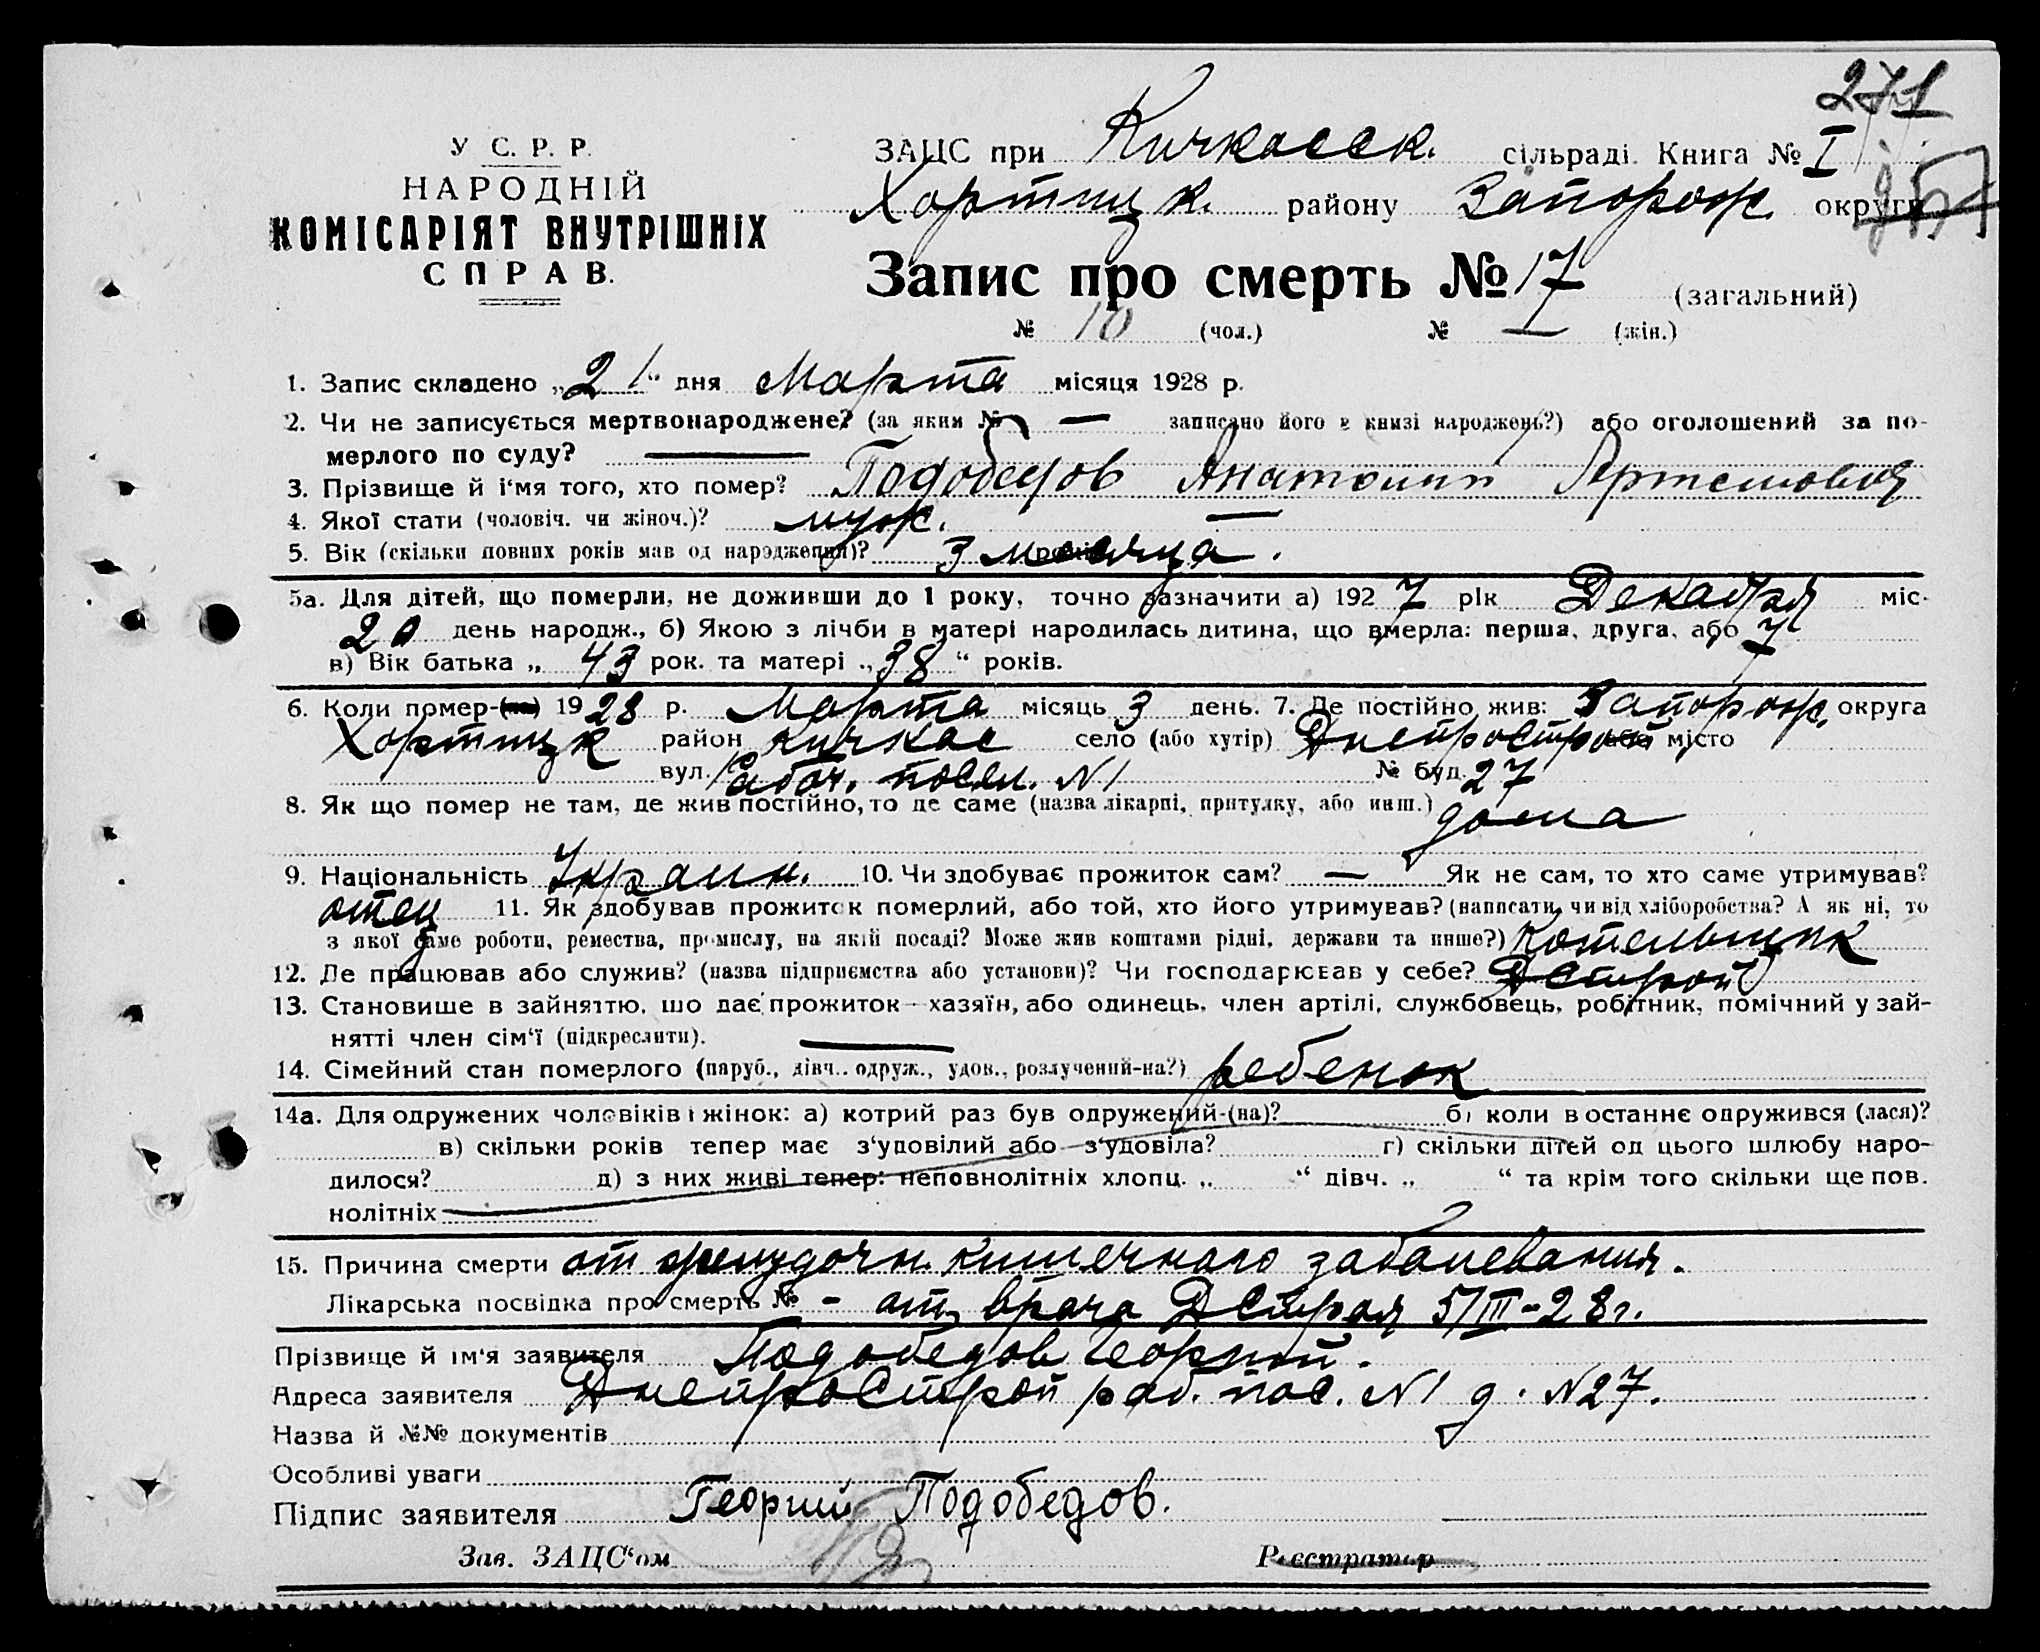 271
У С. Р. Р.
НАРОДНІЙ
КОМІСАРІЯТ ВНУТРІШНІХ
СПРАВ.
ЗАЦС при Кичкасск. сільраді. Книга № I
Хортицк. району Запорож. округи
Запис про смерть № 17 (загальний)
№ 10 (чол.) № — (жін.)
1. Запис складено „21“ дня Марта місяця 1928 р.
2. Чи не записується мертвонароджене? (за яким № — записано його в книзі народжень?) або оголошений за по-
мерлого по суду? —
3. Прізвище й і‘мя того, хто помер? Подобедов Анатолий Артемович
4. Якої стати (чоловіч. чи жіноч.)? муж. —
5. Вік (скільки повних років мав од народження)? 3 месяца.
5а. Для дітей, що померли, не доживши до 1 року, точно зазначити а) 1927 рік Декабря міс.
20 день народж., б) Якою з лічби в матері народилась дитина, що вмерла: перша, друга, або 7
в) Вік батька „ 43 рок. та матері „38“ років.
6. Коли помер-(ла) 1928 р. Марта місяць 3 день. 7. Де постійно жив: Запорож. округа
Хортицк район Кичкас село (або хутір) Днепрострой або місто
вул. Рабоч. посел. N1 № буд. 27
8. Як що помер не там, де жив постійно, то де саме (назва лікарні, притулку, або инш.) дома
9. Національність Украин. 10. Чи здобуває прожиток сам? — Як не сам, то хто саме утримував?
отец 11. Як здобував прожиток померлий, або той, хто його утримував? (написати, чи від хліборобства? А як ні, то
з якої саме роботи, ремества, промислу, на якій посаді? Може жив коштами рідні, держави та инше?) Котельщик
12. Де працював або служив? (назва підприємства або установи)? Чи господарював у себе? ДСтрой
13. Становище в зайняттю, що дає прожиток — хазяїн, або одинець, член артілі, службовець, робітник, помічний у зай-
нятті член сім‘ї (підкреслити). —
14. Сімейний стан померлого (паруб., дівч., одруж., удов., розлучений-на?) ребенок
14а. Для одружених чоловіків і жінок: а) котрий раз був одружений-(на)? б) коли востаннє одружився (лася)?
в) скільки років тепер має з‘удовілий або з‘удовіла? г) скільки дітей од цього шлюбу наро-
дилося? д) з них живі тепер: неповнолітніх хлопц. „ “ дівч. „ “ та крім того скільки ще пов.
нолітніх
15. Причина смерти от желудочн. кишечного заболевания.
Лікарська посвідка про смерть № - от врача ДСтроя 5/III-28г.
Прізвище й ім‘я заявителя Подобедов Георгий.
Адреса заявителя Днепрострой раб. пос. N1 д. N27.
Назва й №№ документів
Особливі уваги
Підпис заявителя Георгий Подобедов.
Зав. ЗАЦС‘ом Реєстратор